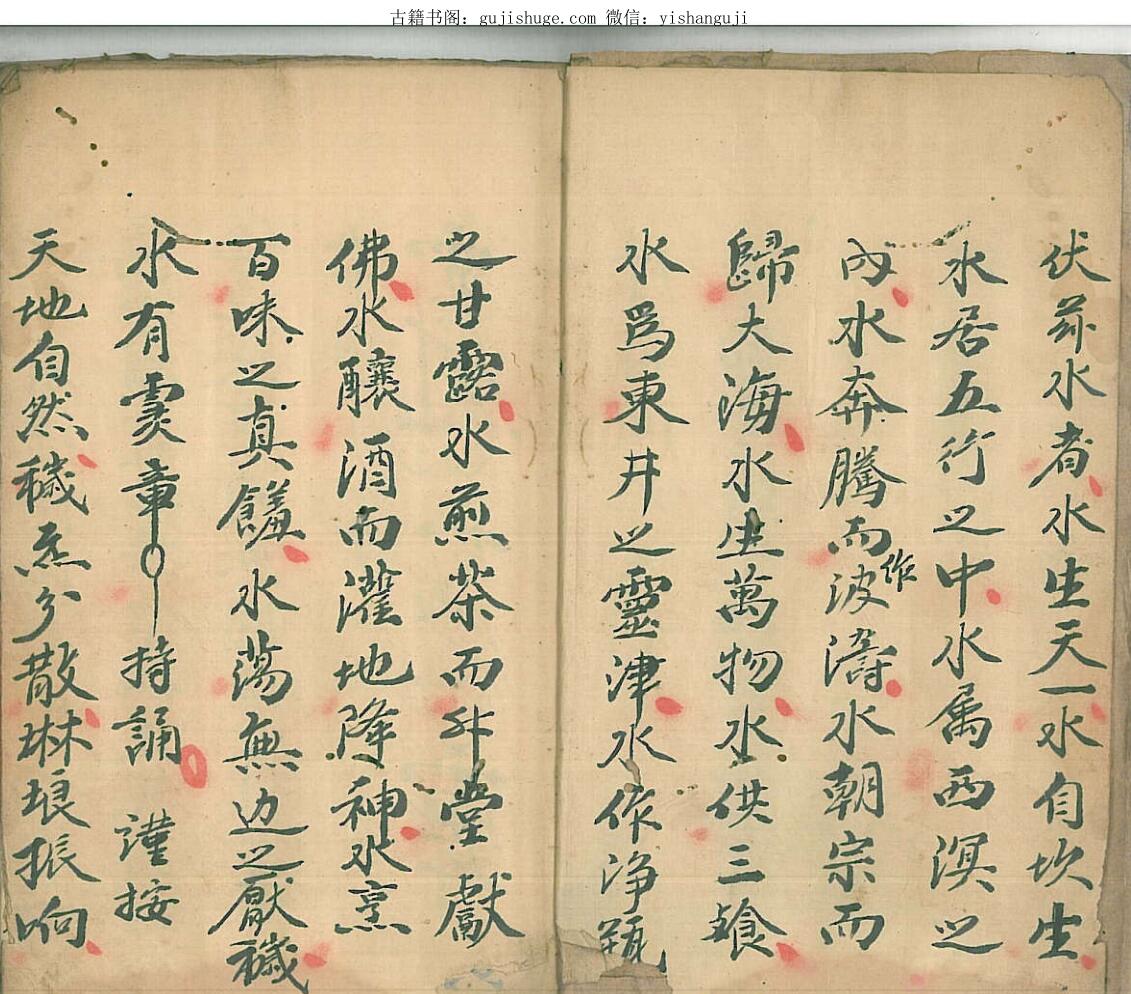 古籍书阁：gujishuge.com 微信：yishanguji
伏菞水者水生天一水自坎生
水居五行之中水属西溟之
内水奔騰而作波濤水朝宗而
歸大海水生萬物水供三飡
水爲東井之靈津水作净瓶
之甘露水煎茶而升堂獻
佛水釀酒而灌地降神水烹
百味之真饈水蕩無边之厭穢
水有灵章持誦 谨按
天地自然穢炁分散琳琅振响